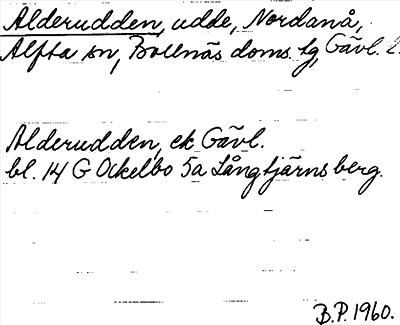 Alderudden, udde, Nordanå,
Alfta sn, Bollnäs doms. tg, Gävl. l.
Alderudden, ek Gävl.
bl. 14 G Ockelbo 5a Långtjärnsberg.
B.P. 1960.